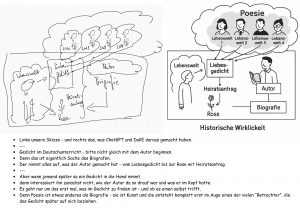 Poesie
Lebens-
welt 1
Lebens-
welt 2
Lebens-
welt 3
Lebens-
welt 4
Lebenswelt
Liebes-
gedicht
Heiratsantrag
Autor
Rose
Biografie
Historische Wirklichkeit
Autor
Biografie
Rose
• Links unsere Skizze - und rechts das, was ChatGPT und DallE daraus gemacht haben.
• ---
• Gedicht im Deutschunterricht - bitte nicht gleich mit dem Autor beginnen.
• Denn das ist eigentlich Sache des Biografen.
• Der nimmt alles auf, was der Autor gemacht hat - vom Liebesgedicht bis zur Rose mit Heiratsantrag.
• ---
• Aber wenn jemand später so ein Gedicht in die Hand nimmt,
• dann interessiert ihn zunächst nicht, wie der Autor da so drauf war und was er im Kopf hatte.
• Es geht nur um das erst mal, was im Gedicht zu finden ist - und ob es einen selbst trifft.
• Denn Poesie ist etwas anderes als Biografie - sie ist Kunst und die entsteht komplett erst im Auge eines der vielen "Betrachter", die
das Gedicht später auf sich beziehen.